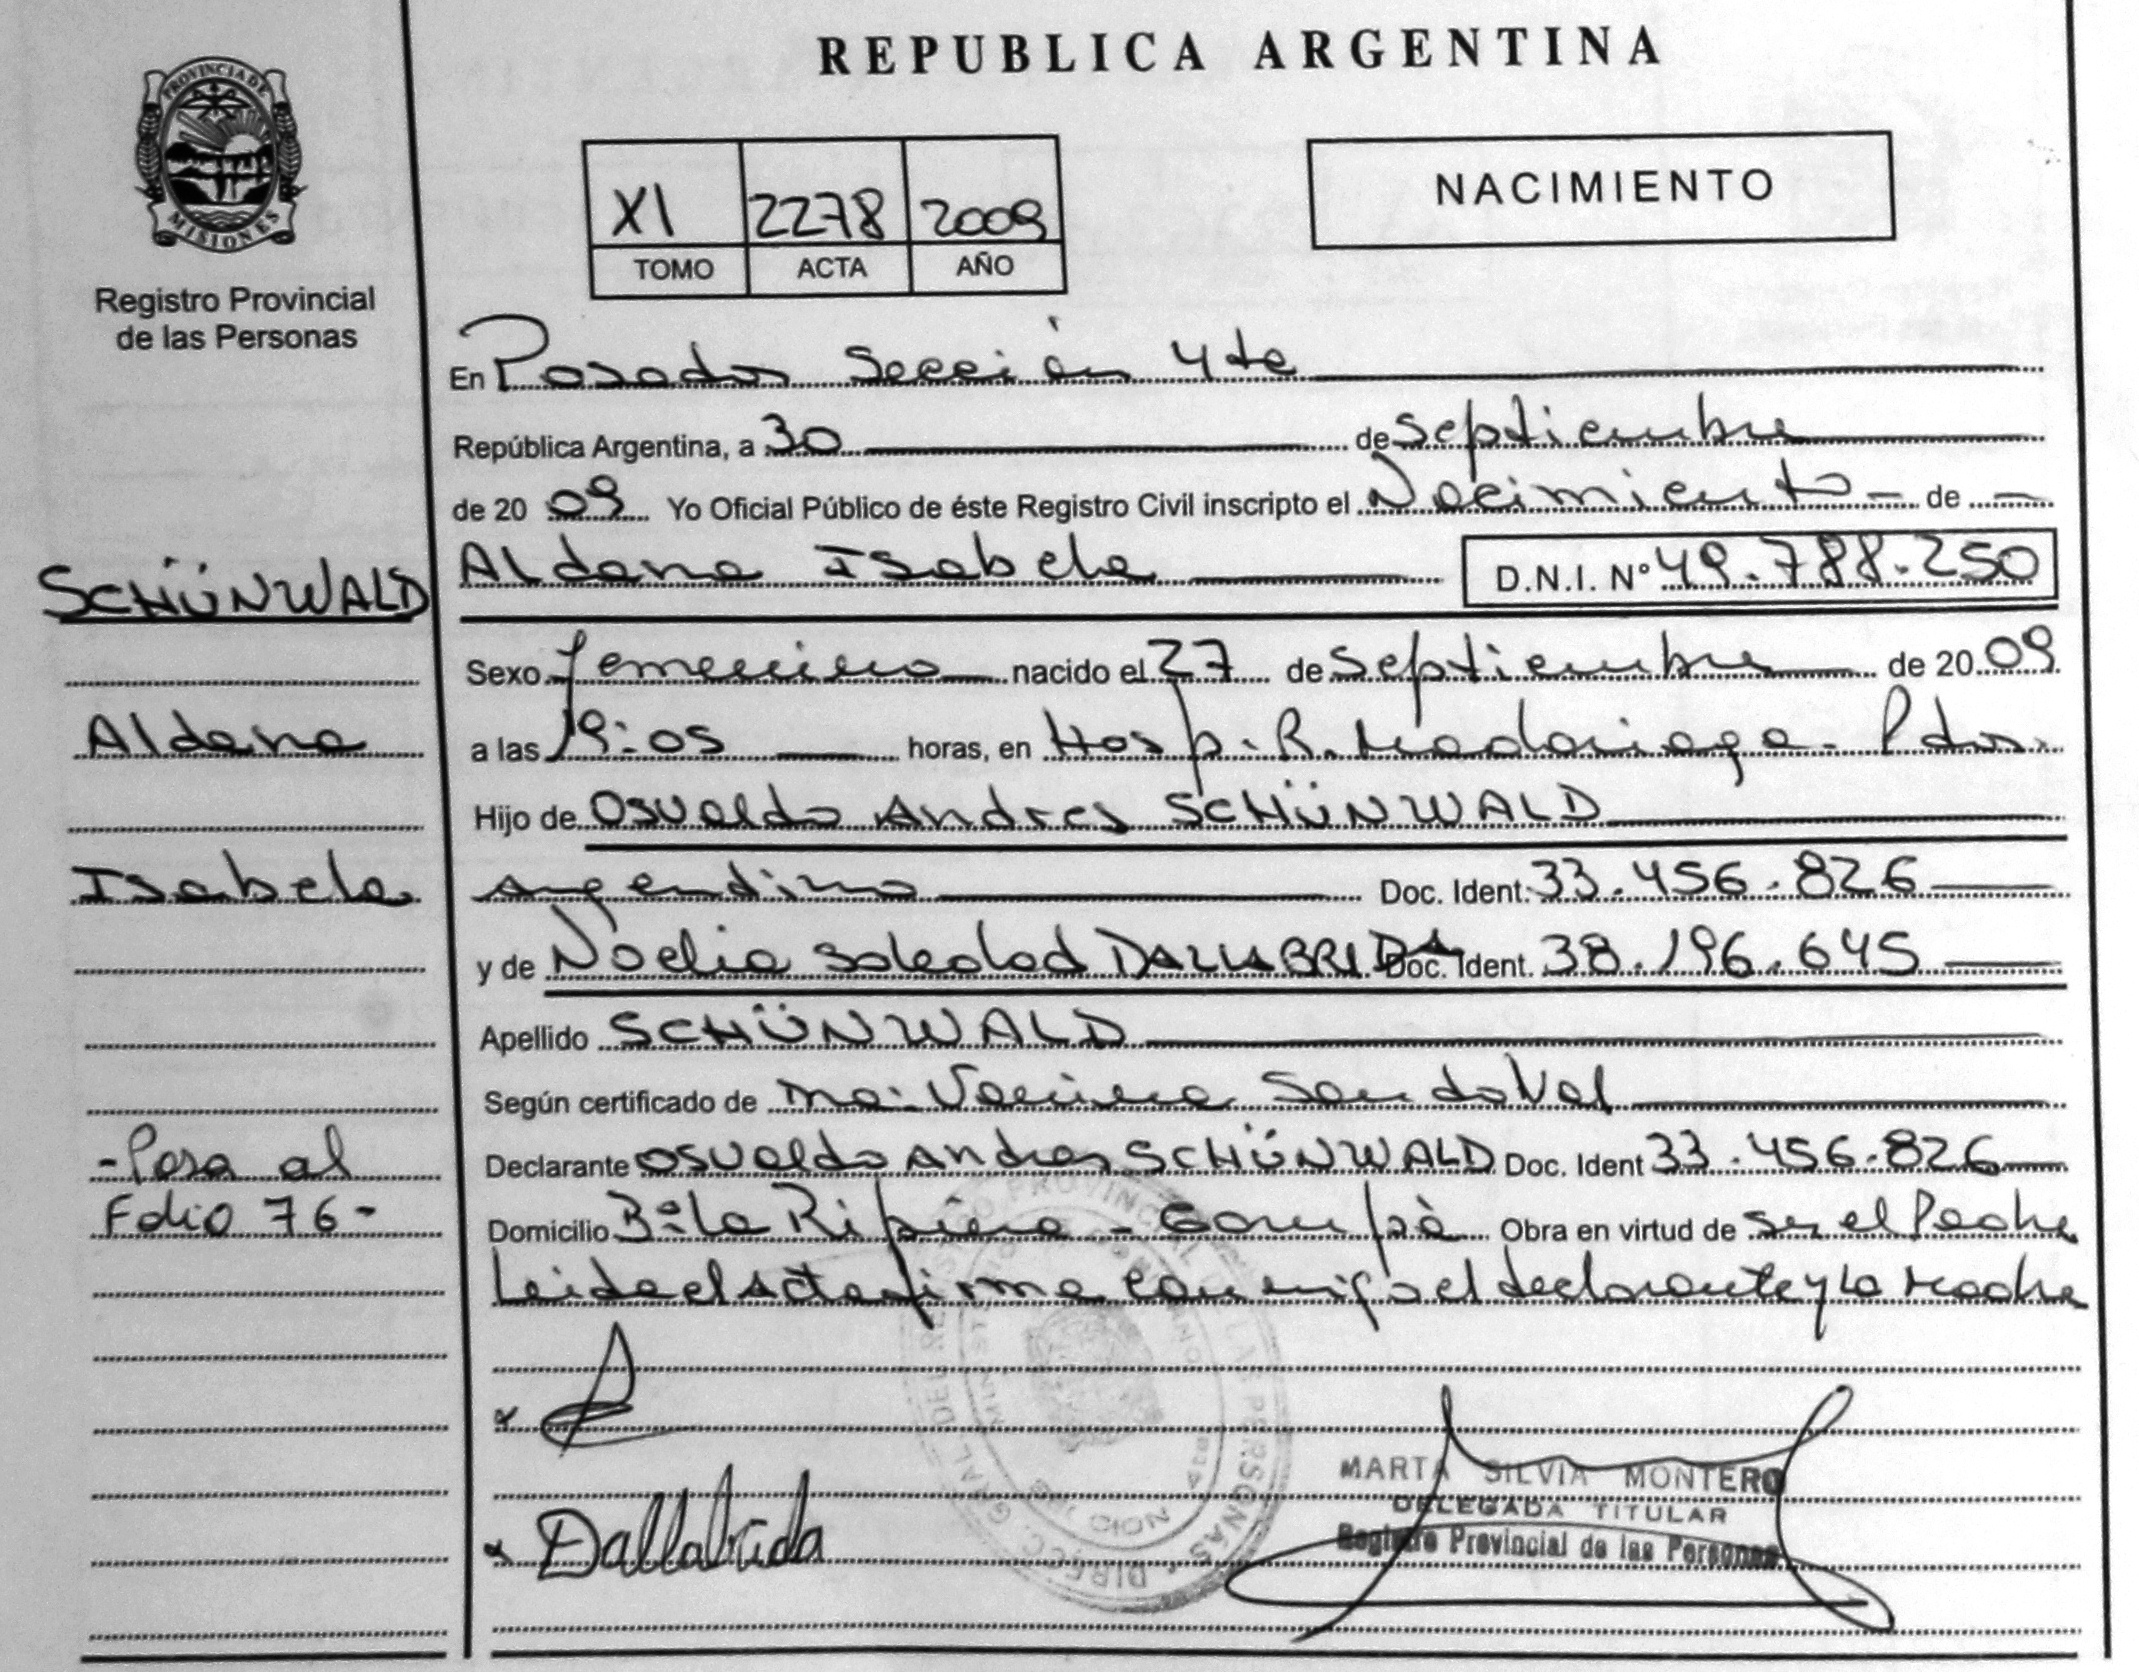 REPUBLICA ARGENTINA
PROVINCIA DE
MISIONES
Registro Provincial
de las Personas
XI 2278 2009
TOMO ACTA AÑO
NACIMIENTO
En Posadas Sección 4ta
República Argentina, a 30 de Septiembre
de 2009 Yo Oficial Público de éste Registro Civil inscripto el Nacimiento - de -
Aldana Isabela D.N.I. Nº 49.788.250
Sexo femenino nacido el 27 de Septiembre de 2009
a las 19:05 horas, en Hosp. R. Madariaga - Pdas.
Hijo de Osvaldo Andres SCHÜNWALD
Argentino Doc. Ident. 33.456.826
y de Noelia Soledad DALLABRIDA Doc. Ident. 38.196.645
Apellido SCHÜNWALD
Según certificado de Ma. Vanina Sandoval
Declarante Osvaldo Andres SCHÜNWALD Doc. Ident 33.456.826
Domicilio Bº La Ripiera - Garupà Obra en virtud de ser el Padre
Leida el Acta firma conmigo el declarante y la Madre
SCHÜNWALD
Aldana
Isabela
- Pasa al
Folio 76 -
Dallabrida
MARTA SILVIA MONTERO
DELEGADA TITULAR
Registro Provincial de las Personas
DIRECC. GRAL DEL REGISTRO PROVINCIAL DE LAS PERSONAS